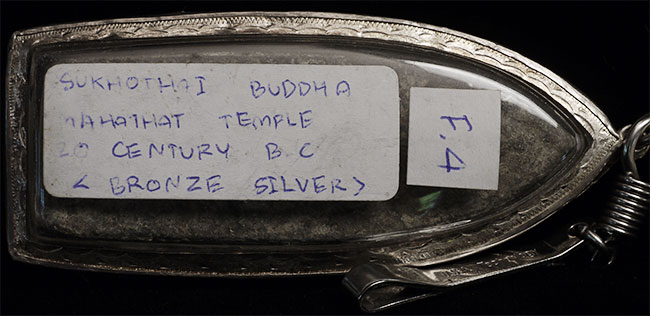 SUKHOTHAI BUDDHA
MAHATHAT TEMPLE
20 CENTURY B C
< BRONZE SILVER>
F.4